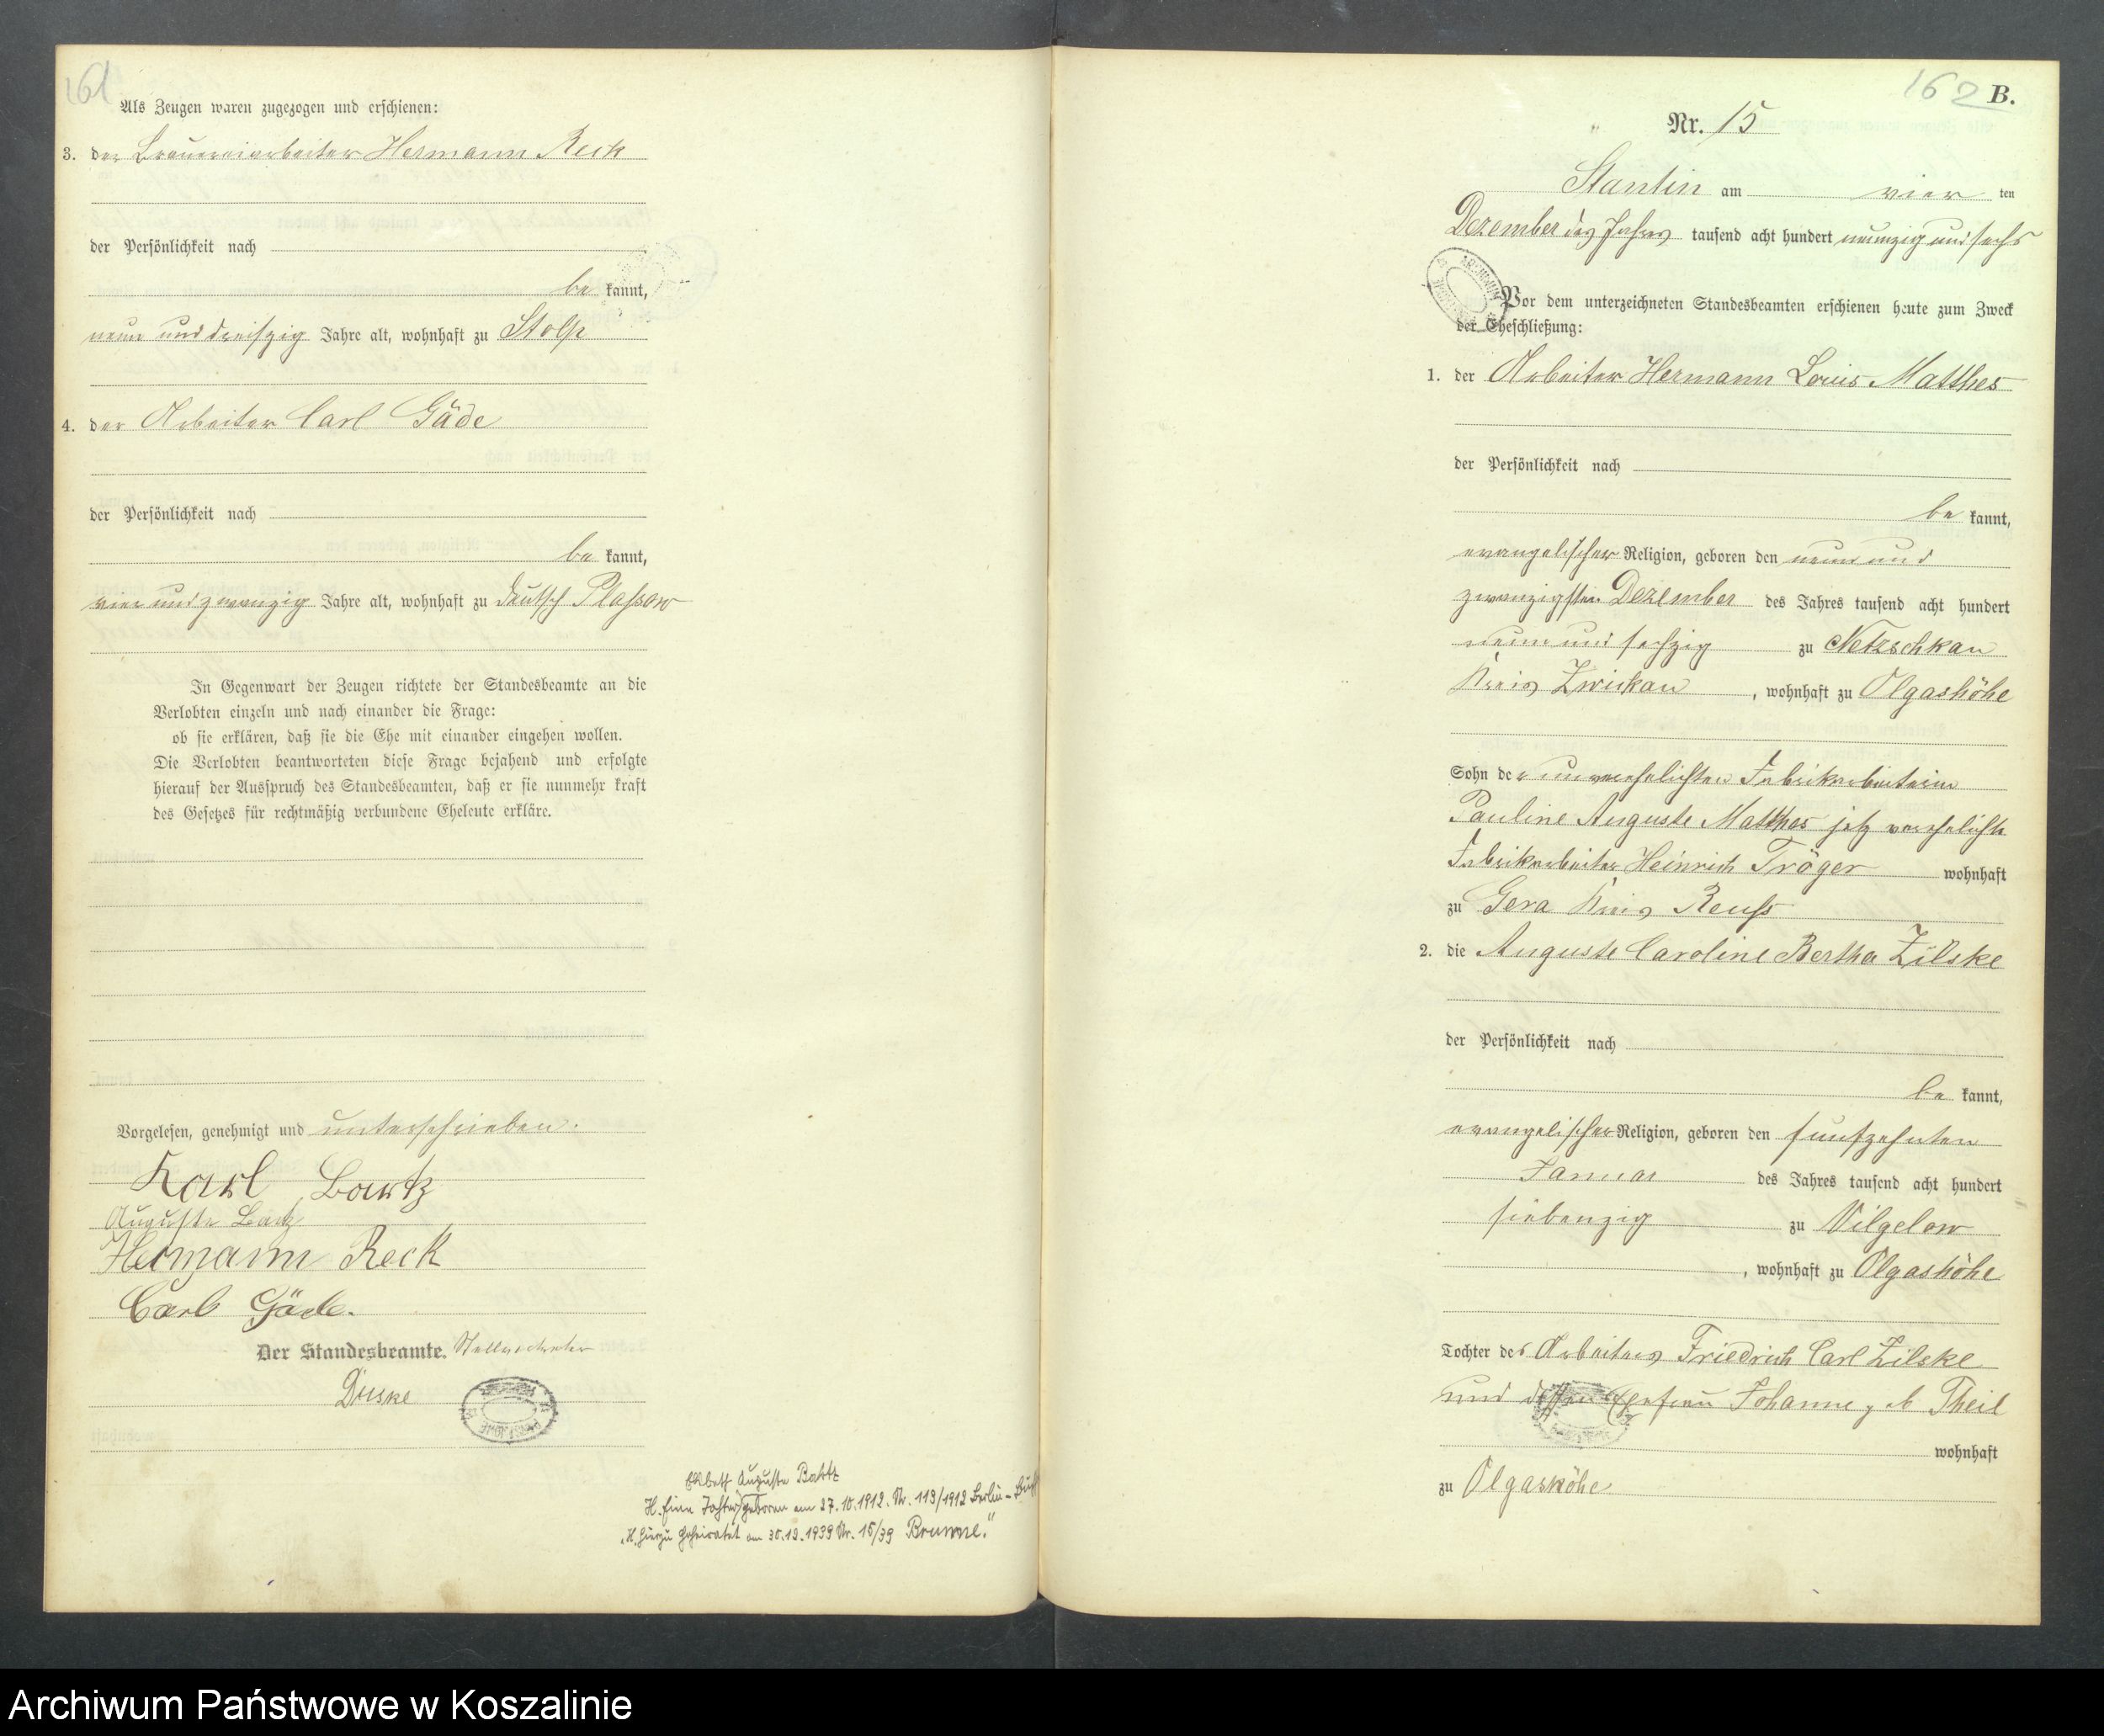 161
Als Zeugen waren zugezogen und erschienen:
3. der Brauereiarbeiter Hermann Reck
der Persönlichkeit nach
be kannt,
neun und dreißzig Jahre alt, wohnhaft zu Stolp
4. der Arbeiter Carl Gäde
der Persönlichkeit nach
be kannt,
vier und zwanzig Jahre alt, wohnhaft zu deutsch Plassow
In Gegenwart der Zeugen richtete der Standesbeamte an die
Verlobten einzeln und nach einander die Frage:
ob sie erklären, daß sie die Ehe mit einander eingehen wollen.
Die Verlobten beantworteten diese Frage bejahend und erfolgte
hierauf der Ausspruch des Standesbeamten, daß er sie nunmehr kraft
des Gesetzes für rechtmäßig verbundene Eheleute erkläre.
Vorgelesen, genehmigt und unterschrieben.
Karl Bartz
Auguste
Hermann Reck
Carl Gäde.
Der Standesbeamte. Stellvertreter
Auguste
H. Eine Tochter geboren am 27.10.1912. Nr. 113/1912 Berlin-Buch
"H. hierzu Geheiratet am 30.12.1939 Nr. 15/39
162 B.
Nr. 15
Stantin am vier ten
Dezember des Jahres tausend acht hundert neunzig und sechs
Vor dem unterzeichneten Standesbeamten erschienen heute zum Zweck
der Eheschließung:
1. der Arbeiter Hermann Louis Matthes
der Persönlichkeit nach
be kannt,
evangelischer Religion, geboren den neun und
zwanzigsten Dezember des Jahres tausend acht hundert
neun und sechzig zu Netzschkau
Kreis Zwickau, wohnhaft zu Olgashöhe
Sohn der unverehelichten Fabrikarbeiterin
Pauline Auguste Matthes jetz verehelichte
Fabrikarbeiter Heinrich Tröger wohnhaft
zu Gera Kreis Reuß
2. die Auguste Caroline Bertha Zilske
der Persönlichkeit nach
be kannt,
evangelischer Religion, geboren den funfzehnten
Januar des Jahres tausend acht hundert
siebenzig zu Vilgelow
, wohnhaft zu Olgashöhe
Tochter des Arbeiters Friedrich Carl Zilske
und dessen Ehefrau Johanne geb Theil
wohnhaft
zu Olgashöhe
Archiwum Państwowe w Koszalinie